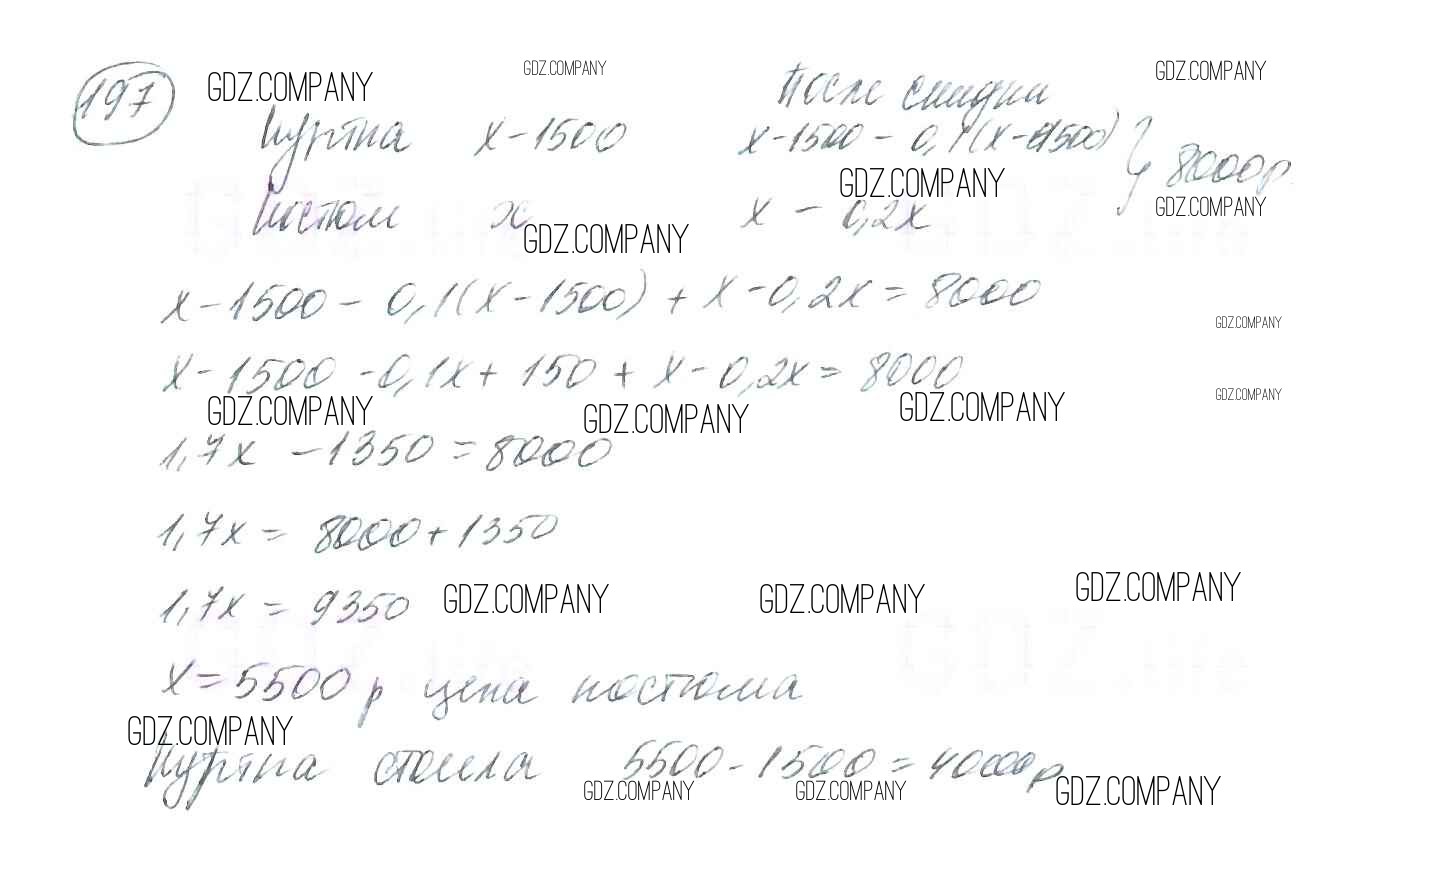 197
GDZ.COMPANY GDZ.COMPANY GDZ.COMPANY
После скидки
Куртка x-1500 x-1500-0,1(x-1500) } 8000р.
GDZ.COMPANY GDZ.COMPANY
Костюм x x-0,2x
GDZ.COMPANY
x-1500-0,1(x-1500)+x-0,2x=8000
GDZ.COMPANY
x-1500-0,1x+150+x-0,2x=8000
GDZ.COMPANY
GDZ.COMPANY GDZ.COMPANY GDZ.COMPANY
1,7x-1350=8000
1,7x=8000+1350
1,7x=9350
GDZ.COMPANY GDZ.COMPANY GDZ.COMPANY
x=5500 р цена костюма
GDZ.COMPANY
Куртка стоила 5500-1500=4000р
GDZ.COMPANY GDZ.COMPANY GDZ.COMPANY